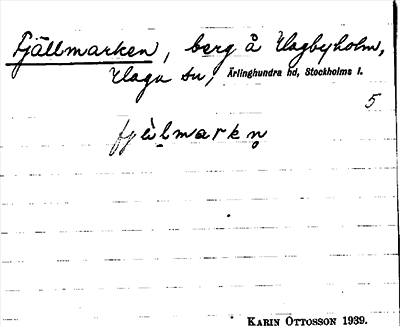 Fjällmarken, berg å Hagbyholm,
Haga sn, Ärlinghundra hd, Stockholms l.
5
fjälmarkn̥
KARIN OTTOSSON 1939.